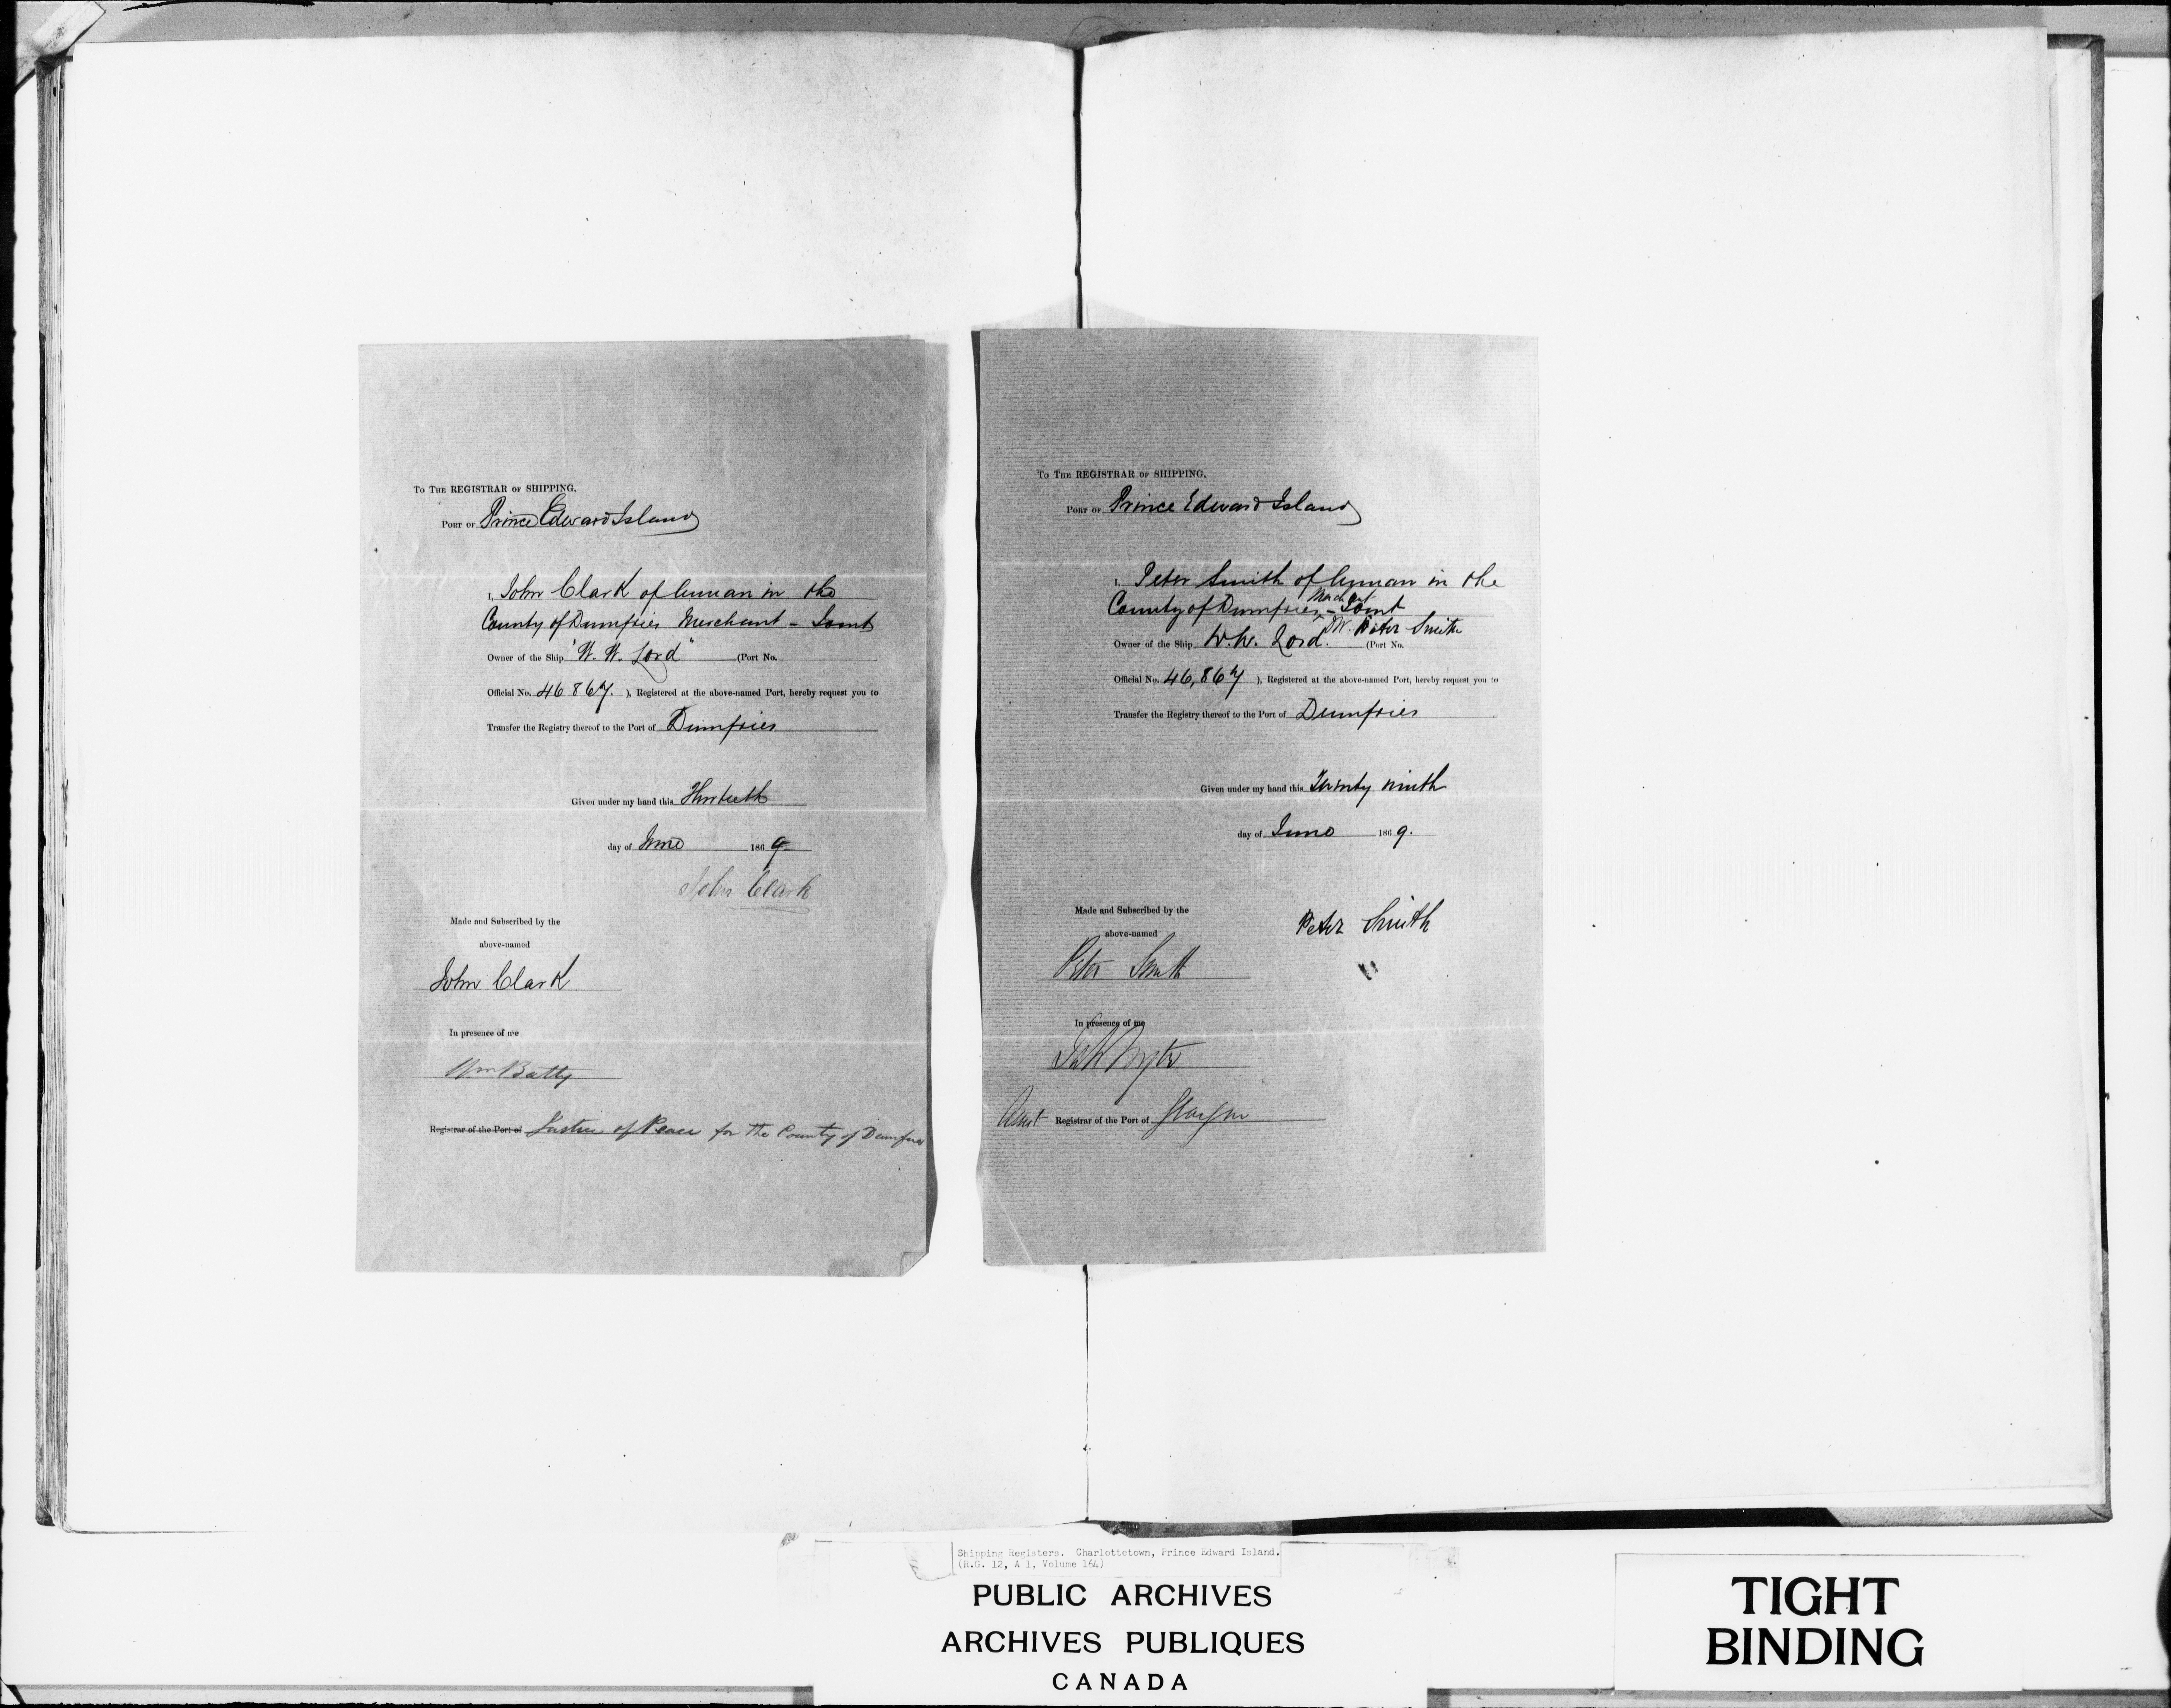 To The REGISTRAR of SHIPPING,
Port of Prince Edward Island
I, John Clark of Annan in the
County of Dumfries Merchant - Joint
Owner of the Ship "W. W. Lord" (Port No.
Official No. 46867. ), Registered at the above-named Port, hereby request you to
Transfer the Registry thereof to the Port of Dumfries
Given under my hand this Thirtieth
day of June 1869
John Clark
Made and Subscribed by the
above-named
John Clark
In presence of me
Wm Batty
Registrar of the Port of Justice of Peace for the County of Dumfries
To The REGISTRAR of SHIPPING,
Port of Prince Edward Island
I, Peter Smith of Annan in the
County of Dumfries, Merchant - Joint
Peter Smith
Owner of the Ship W. W. Lord. (Port No.
Official No. 46,867 ), Registered at the above-named Port, hereby request you to
Transfer the Registry thereof to the Port of Dumfries
Given under my hand this Twenty ninth
day of June 1869.
Peter Smith
Made and Subscribed by the
above-named
Peter Smith
In presence of me
Assist Registrar of the Port of Glasgow
Shipping Registers. Charlottetown, Prince Edward Island.
(R.G. 12, A 1, Volume 164)
PUBLIC ARCHIVES
ARCHIVES PUBLIQUES
CANADA
TIGHT
BINDING